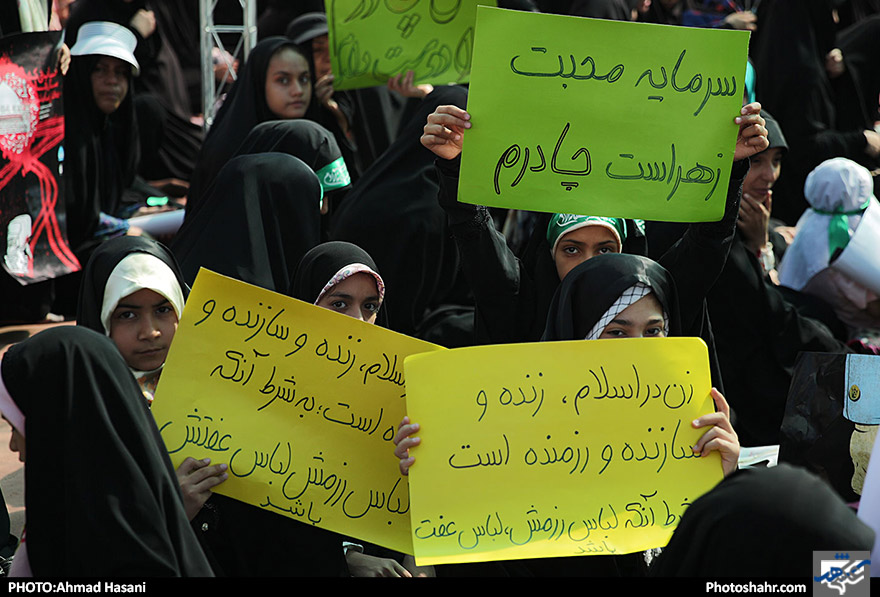 سرمایه محبت
زهراست چادرم
اسلام، زنده و سازنده و
ده است، به شرط آنکه
لباس رزمش لباس عفتش
باشد
زن در اسلام، زنده و
سازنده و رزمنده است
شرط آنکه لباس رزمش، لباس عفت
باشد
PHOTO:Ahmad Hasani
Photoshahr.com